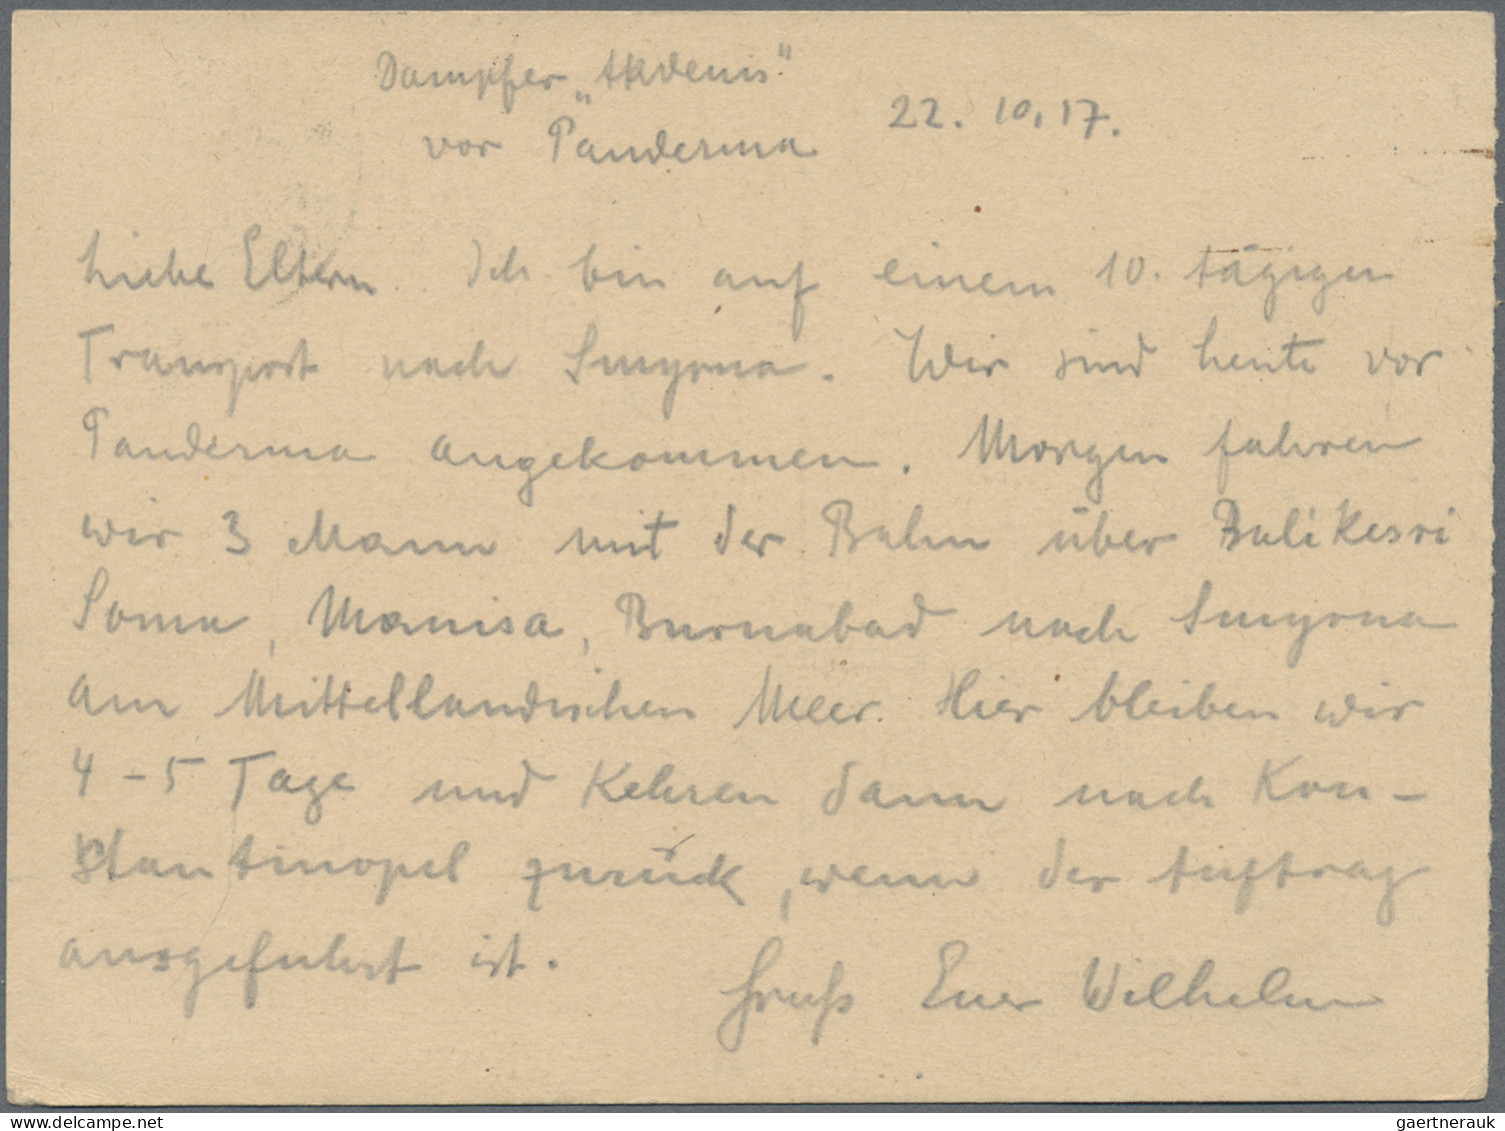 Dampfer „Akdenis"
vor Panderma 22. 10. 17.
Liebe Eltern. Ich bin auf einem 10. tägigen
Transport nach Smyrna. Wir sind heute vor
Panderma angekommen. Morgen fahren
wir 3 Mann mit der Bahn über Balikesri
Soma, Manisa, Burnabad nach Smyrna
am Mittellandischen Meer. Hier bleiben wir
4-5 Tage und kehren dann nach Kon-
stantinopel zurück, wenn der Auftrag
ausgefuhrt ist.
Gruß Euer Wilhelm
www.delcampe.net
gaertnerauk